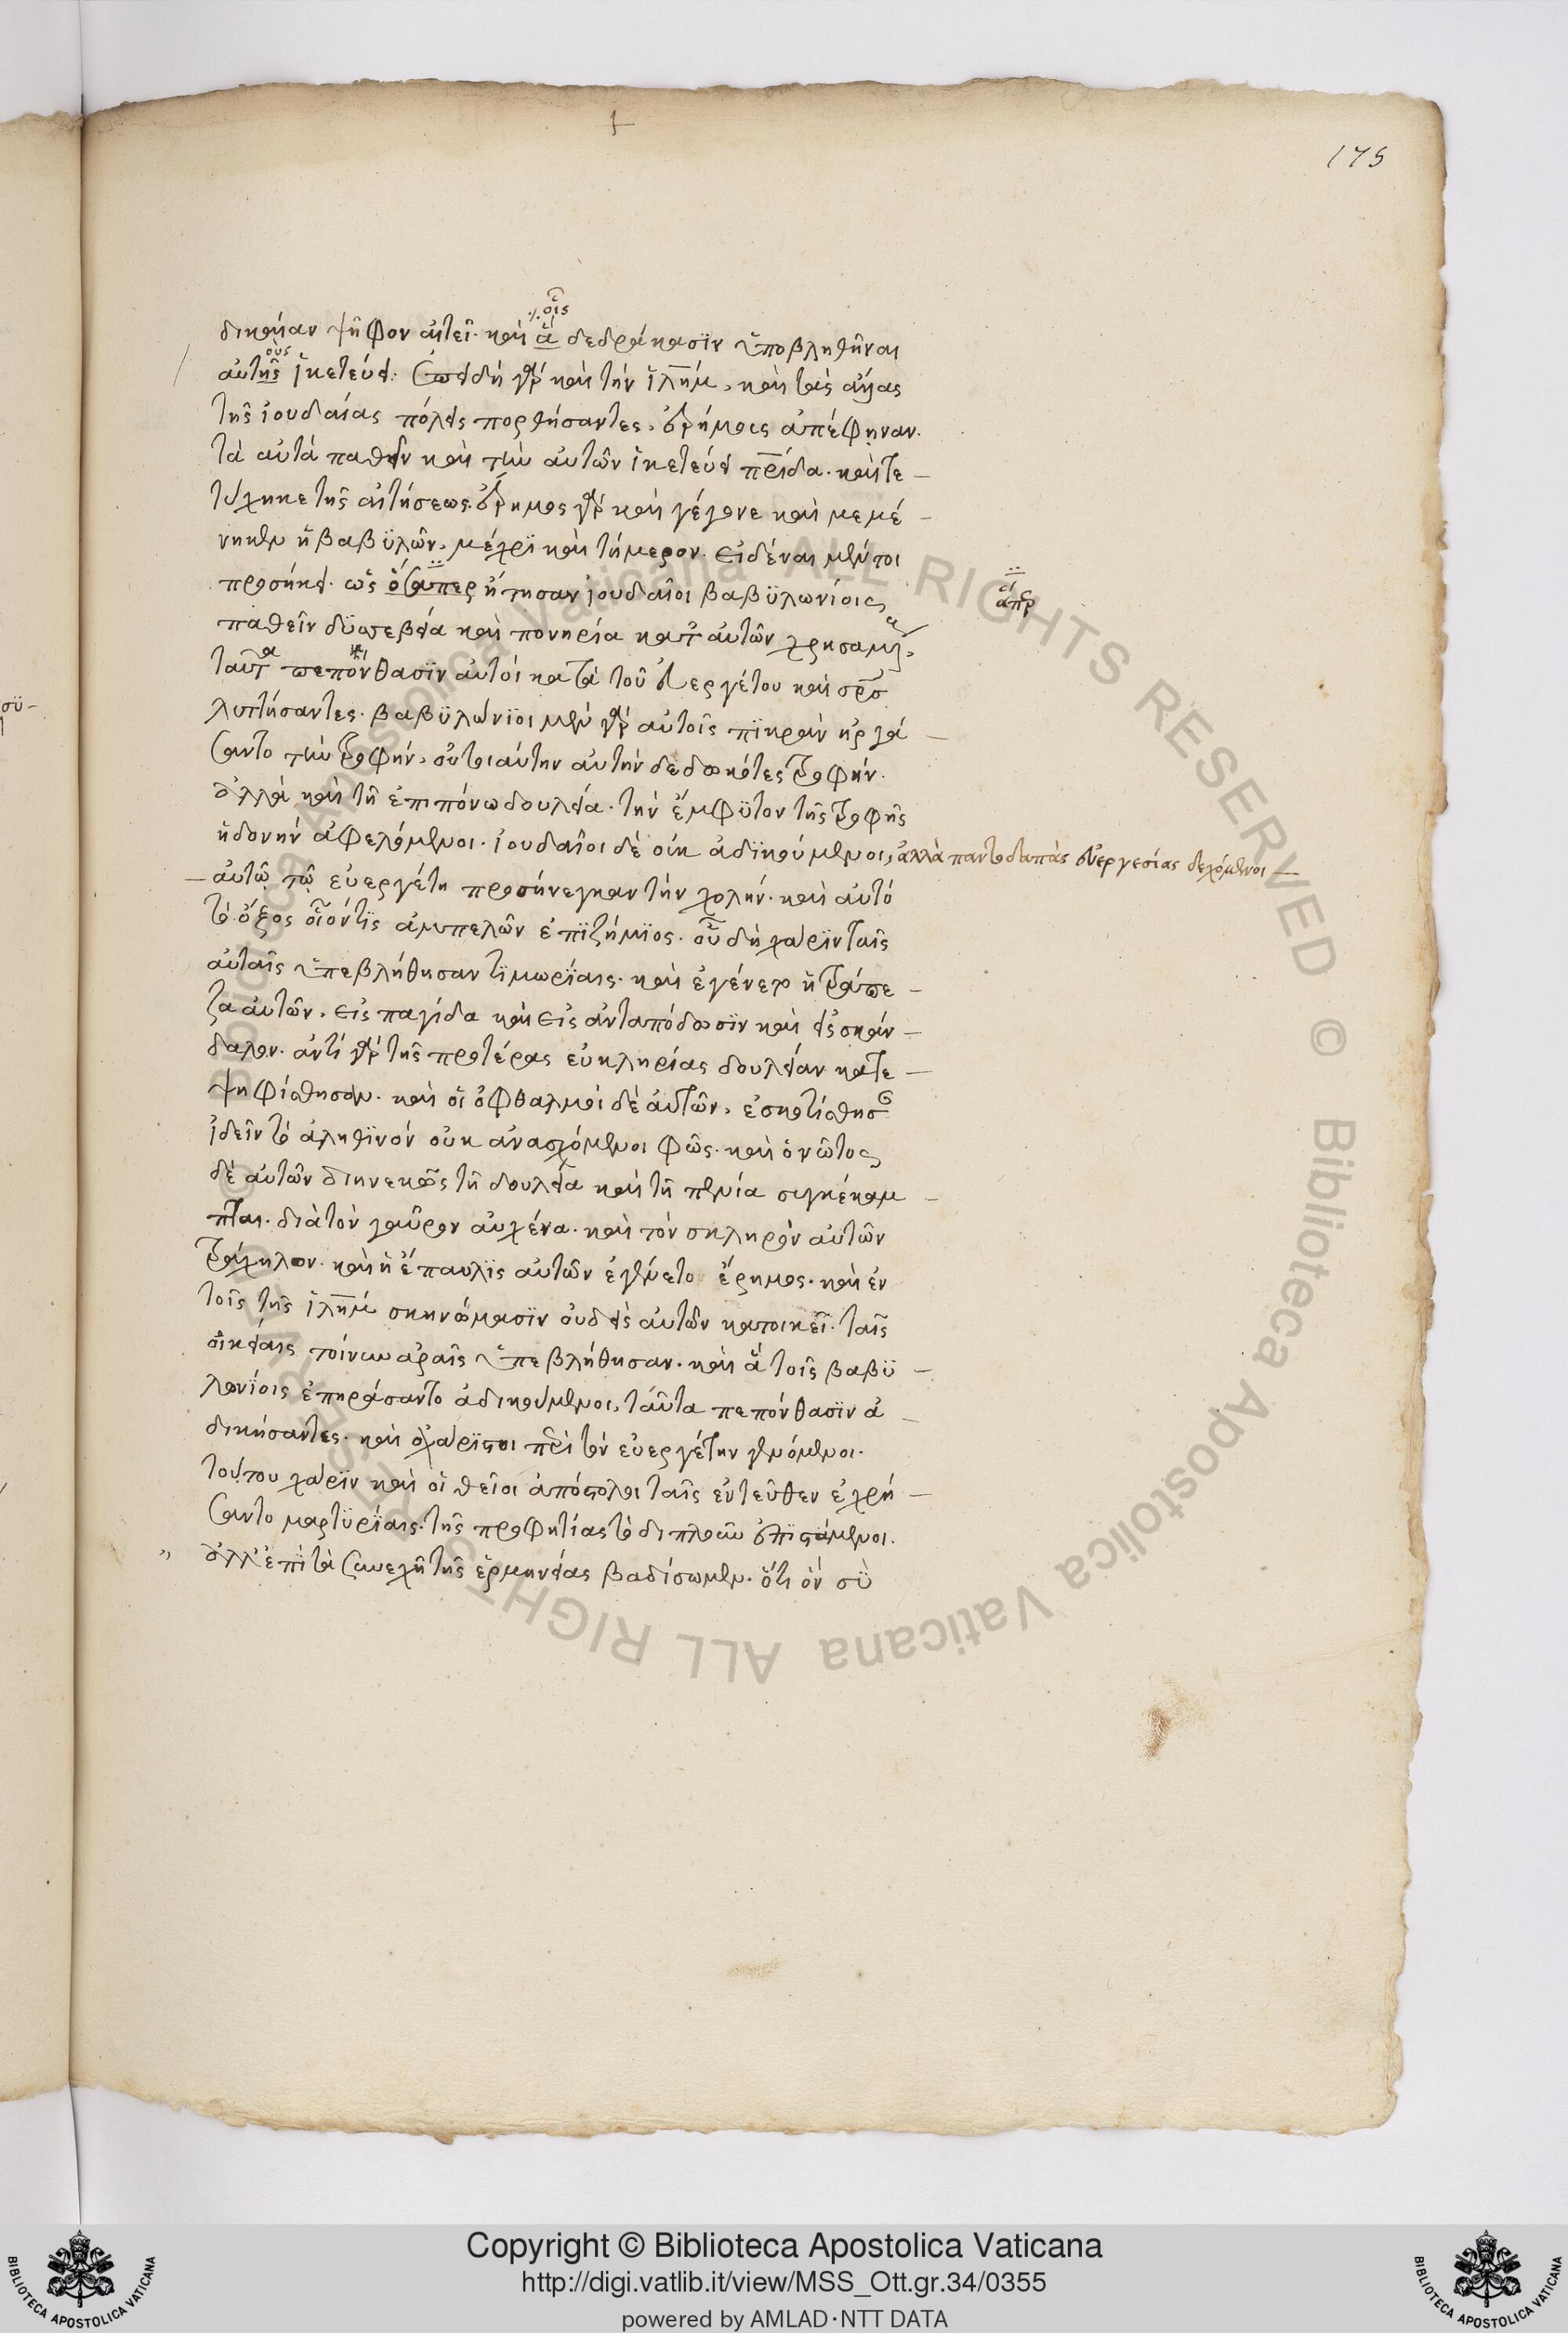 175
οἷς
δικαίαν ψῆφον αἰτεῖ· καὶ ἃ δεδράκασϊν ὑποβληθῆναι
οὺς
αὐτῆς ἱκετεύει· ἐπειδὴ γὰρ καὶ τὴν ϊλημ, καὶ τὰς ἄλλας
τῆς ἰουδαίας πόλεις πορθήσαντες, ἐρήμους ἀπέφηναν·
τὰ αὐτὰ παθεῖν καὶ τὴν αὐτῶν ἱκετεύει πρίδα· καὶ τε
τύχηκε τῆς αἰτήσεως· ἔρημος γὰρ καὶ γέγονε καὶ μεμέ
νηκεν ἡ βαβϋλῶν, μέχρϊ καὶ τήμερον· εἰδέναι μέντοι
προσήκει· ὡς ὅσαπερ ᾔτησαν ἰουδαῖοι βαβϋλωνίοις
ἅπερ
παθεῖν δϋσσεβεία καὶ πονηρία κατ αὐτῶν χρησαμέν
ταῦτα πεπόνθασϊν αὐτοὶ κατὰ τοῦ εὐεργέτου καὶ σρσ
λυττήσαντες· βαβϋλώνϊοι μὲν γὰρ αὐτοῖς πϊκρὰν εἰργά
σαντο τὴν τροφήν, οὐ τοιαύτην αὐτὴν δεδωκότες τροφήν·
ἀλλὰ καὶ τῆ ἐπιπόνω δουλεία· τὴν ἔμφϋτον τῆς τροφῆς
ἡδονὴν ἀφελόμενοι· ἰουδαῖοι δὲ οὐκ ἀδϊκούμενοι, ἀλλὰ παντοδαπὰς εὐεργεσίας δεχόμενοι
αὐτῷ τῷ εὐεργέτη προσήνεγκαν τὴν χολήν· καὶ αὐτὸ
τὸ ὄξος οἷόν τϊς ἀμπελῶν ἐπϊζήμϊος· οὗ δὴ χάρϊν ταῖς
αὐταῖς ὑπεβλήθησαν τϊμωρϊαις· καὶ ἐγένετο ἡ τράπε
ζα αὐτῶν, εἰς παγίδα καὶ εἰς ἀνταπόδοσϊν καὶ εἰς σκάν
δαλον· ἀντὶ γὰρ τῆς προτέρας εὐκληρίας δουλείαν κατε
ψηφίσθησαν· καὶ οἱ ὀφθαλμοὶ δὲ αὐτῶν, ἐσκοτίσθησαν
ἰδεῖν τὸ ἀληθϊνὸν οὐκ ἀνασχόμενοι φῶς· καὶ ὁ νῶτος
δὲ αὐτῶν διηνεκῶς τῆ δουλεία καὶ τῆ πενία συγκέκαμ
πται· διὰ τὸν γαῦρον αὐχένα· καὶ τὸν σκληρὸν αὐτῶν
τράχηλον· καὶ ἡ ἔπαυλϊς αὐτῶν ἐγένετο ἔρημος· καὶ ἐν
τοῖς τῆς ϊλημ σκηνώμασϊν οὐδεὶς αὐτῶν κατοικεῖ· ταῖς
οἰκείαις τοίνυν ἀραῖς ὑπεβλήθησαν· καὶ ἃ τοῖς βαβϋ
λωνίοις ἐπηράσαντο ἀδικούμενοι, ταῦτα πεπόνθασϊν ἀ
δικήσαντες· καὶ ἀχάρϊστοι περὶ τὸν εὐεργέτην γενόμενοι·
τούτου χάρϊν καὶ οἱ θεῖοι ἀπόστολοι ταῖς ἐντεῦθεν ἐχρή
σαντο μαρτϋρϊαις· τῆς προφητίας τὸ διπλοῦν ἐπϊστάμενοι·
ἀλλ' ἐπὶ τὰ συνεχῆ τῆς ἑρμηνείας βαδίσωμεν· ὅτι ὃν σὺ
Copyright © Biblioteca Apostolica Vaticana
http://digi.vatlib.it/view/MSS_Ott.gr.34/0355
powered by AMLAD·NTT DATA